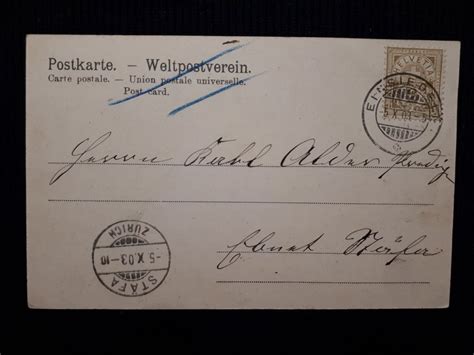 Postkarte. — Weltpostverein.
Carte postale. — Union postale universelle.
Post card.
HELVETIA
EINSIEDELN
5.X.03
Herrn Karl Alder
Ebnat Stäfa
STÄFA
-5.X.03-10
ZÜRICH